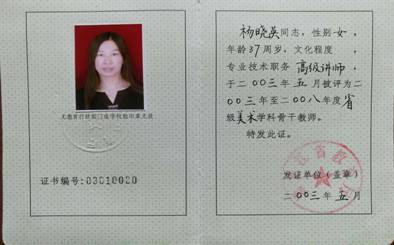 无教育行政部门或学校骑印章无效
证书编号:03010020
杨晓英同志,性别女,
年龄37周岁,文化程度 ,
专业技术职务 高级讲师,
于二〇〇三年五月被评为二
〇〇三年至二〇〇八年度省
级美术学科骨干教师。
特发此证。
发证单位(盖章)
二〇〇三年五月